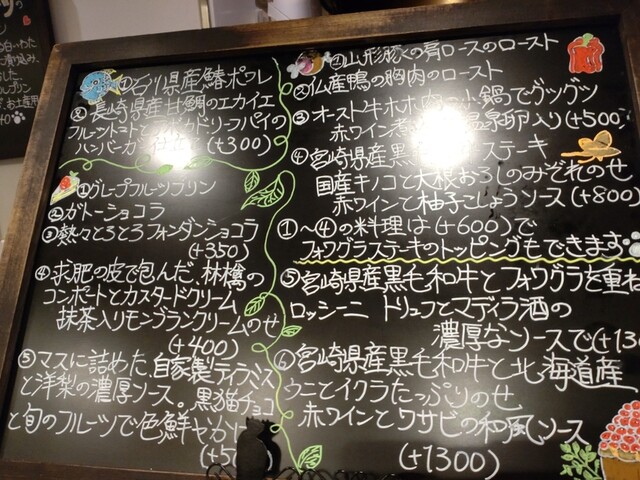 ①石川県産鰆ポワレ
②長崎県産甘鯛のエカイエ
フルーツトマトとアボカドリーフパイの
ハンバーガー仕立て(+300)
①グレープフルーツプリン
②ガトーショコラ
③熱々とろとろフォンダンショコラ
(+350)
④求肥の皮で包んだ、林檎の
コンポートとカスタードクリーム
抹茶入りモンブランクリームのせ
(+400)
⑤マスに詰めた、自家製ティラミス
と洋梨の濃厚ソース。黒猫チョコ
と旬のフルーツで色鮮やかに
①山形豚の肩ロースのロースト
②仏産鴨の胸肉のロースト
③オースト牛ホホ肉の小鍋でグツグツ
赤ワイン煮 温泉卵入り(+500)
④宮崎県産黒 ステーキ
国産キノコと大根おろしのみぞれのせ
赤ワインと柚子こしょうソース(+800)
①〜④の料理は(+600)で
フォワグラステーキのトッピングもできます
⑤宮崎県産黒毛和牛とフォワグラを重ね
ロッシーニ トリュフとマディラ酒の
濃厚なソースで(+13
⑥宮崎県産黒毛和牛と北海道産
ウニとイクラたっぷりのせ
赤ワインとワサビの和風ソース
(+1300)